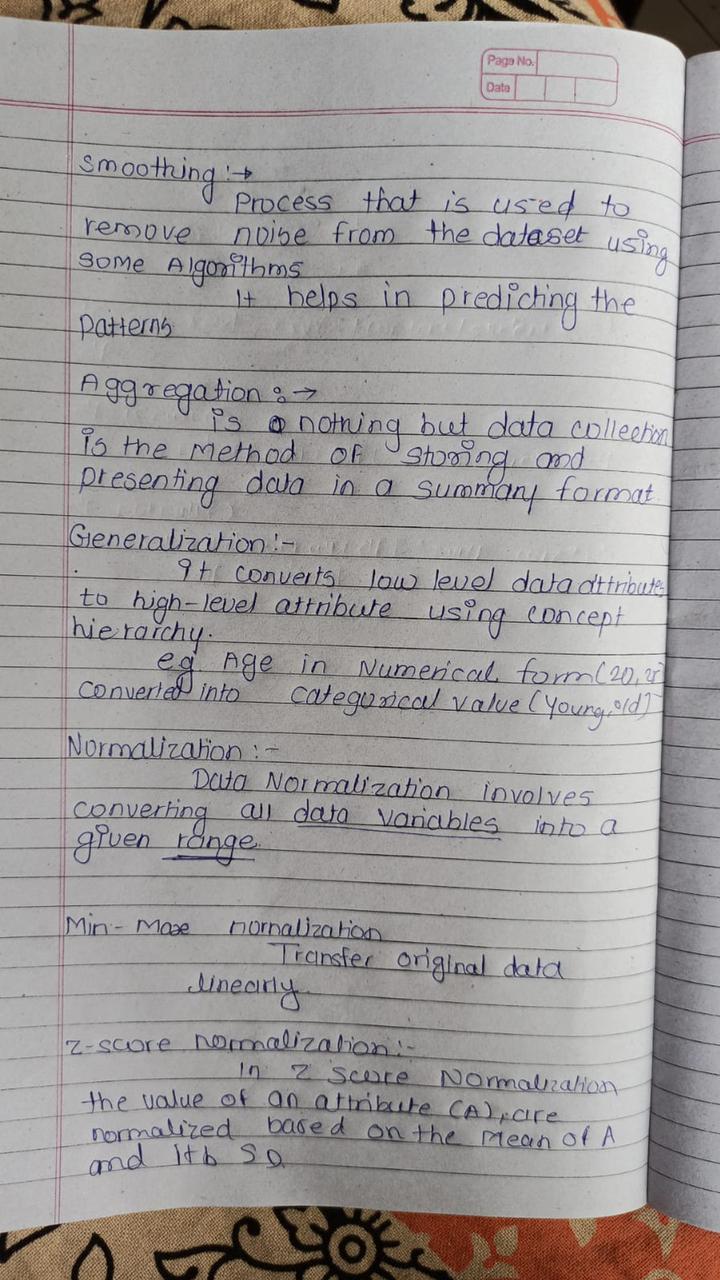 Page No.
Date
Smoothing :→
Process that is used to
remove noise from the dataset using
some Algorithms
It helps in predicting the
patterns
Aggregation :→
is nothing but data collection
is the method of storing and
presenting data in a summary format
Generalization :-
It converts low level data attributes
to high-level attribute using concept
hierarchy.
eg Age in Numerical form (20, 
converted into categorical value (young, old)
Normalization :-
Data Normalization involves
converting all data variables into a
given range
Min - Max normalization
Transfer original data
linearly
z-score normalization :-
In z score Normalization
the value of an attribute (A), are
normalized based on the mean of A
and its SD